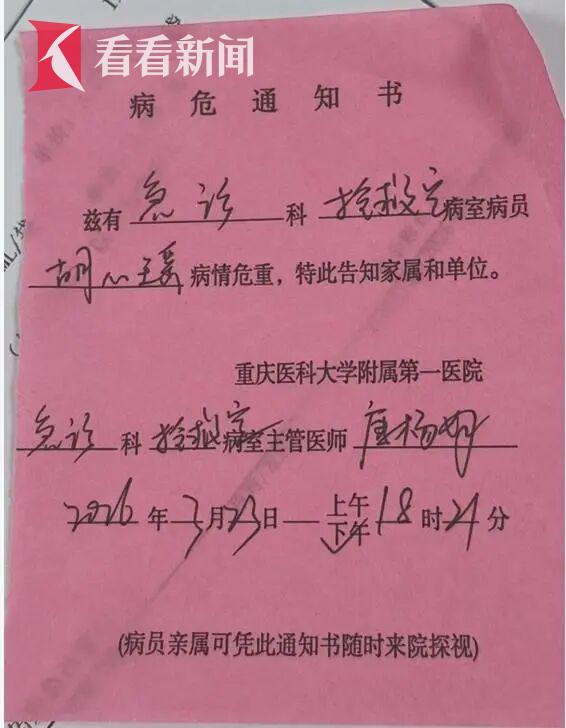 看看新闻
病危通知书
兹有 急诊 科 抢救室 病室病员
胡心瑗 病情危重，特此告知家属和单位。
重庆医科大学附属第一医院
急诊 科 抢救室 病室主管医师 唐杨
2026 年 3 月 23 日 上午
下午 18 时 21 分
(病员亲属可凭此通知书随时来院探视)